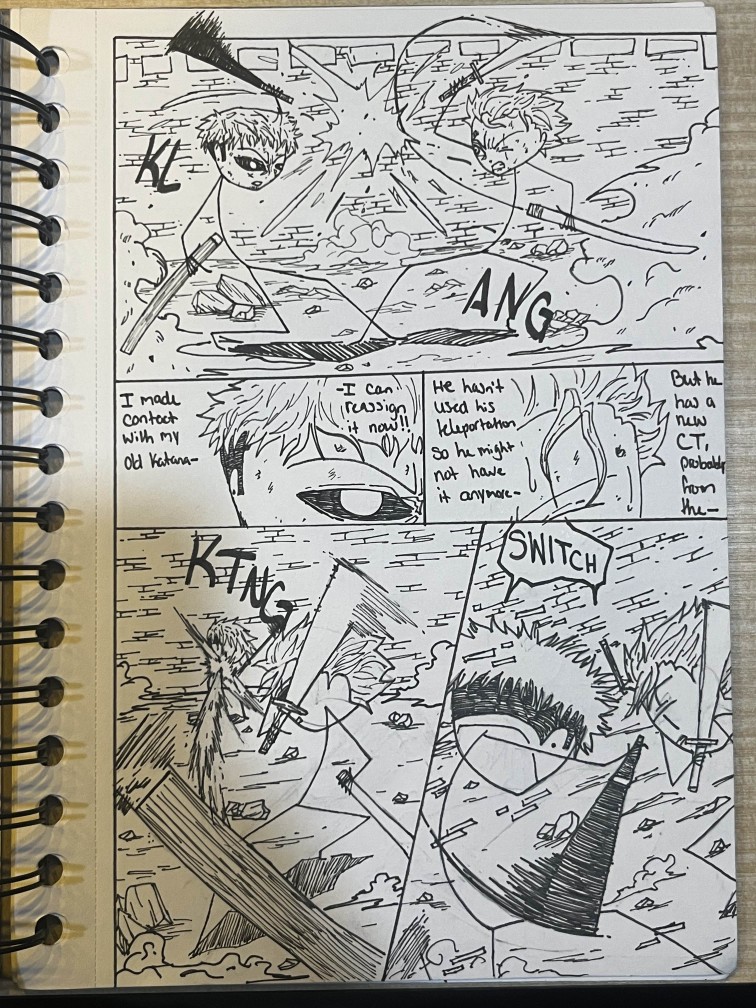 KL
ANG
I made
contact
with my
old katana—
-I can
reassign
it now!!
He hasn't
used his
teleportation
so he might
not have
it anymore-
But he
has a
new
CT,
probably
from
the—
KTNG
SWITCH